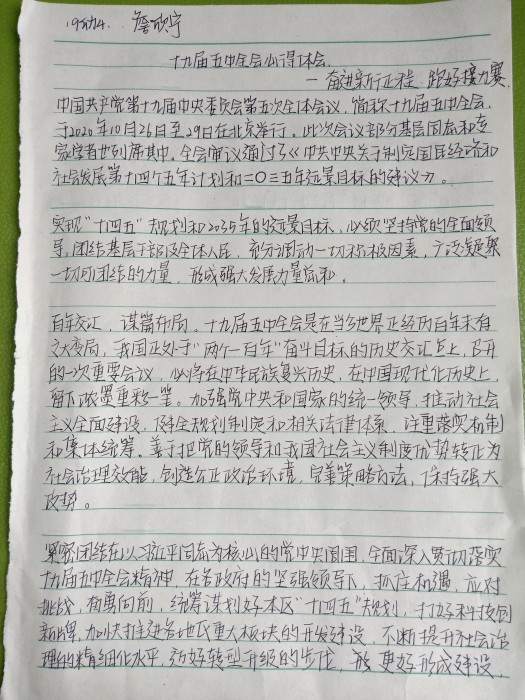 詹欣宁
十九届五中全会心得体会
—奋进新征程 跑好接力赛
中国共产党第十九届中央委员会第五次全体会议，简称十九届五中全会，
于2020年10月26日至29日在北京举行。此次会议部分基层同志和专
家学者也列席其中。全会审议通过了《中共中央关于制定国民经济和
社会发展第十四个五年计划和二〇三五年远景目标的建议》。
实现“十四五”规划和2035年的远景目标，必须坚持党的全面领
导，团结基层干部及全体人民，充分调动一切积极因素，广泛凝聚
一切可团结的力量，形成强大发展力量
百年交汇，谋篇布局。十九届五中全会是在当今世界正经历百年未有
之大变局，我国正处于“两个一百年”奋斗目标的历史交汇点上，召开
的一次重要会议，必将在中华民族复兴历史，在中国现代化历史上，
留下浓墨重彩一笔。加强党中央和国家的统一领导，推动社会
主义全面建设，健全规划制定和相关法律体系，注重落实机制
和集体统筹，善于把党的领导和我国社会主义制度优势转化为
社会治理效能，创造公正政治环境，完善策略方法，保持强大
攻势。
紧密团结在以习近平同志为核心的党中央周围，全面深入贯彻落实
十九届五中全会精神，在各政府的坚强领导下，抓住机遇，应对
挑战，奋勇向前，统筹谋划好本区“十四五”规划，打好科技创
新牌，加快推进各地区重大板块的开发建设，不断提升社会治
理的精细化水平，迈好转型升级的步伐，更好形成建设